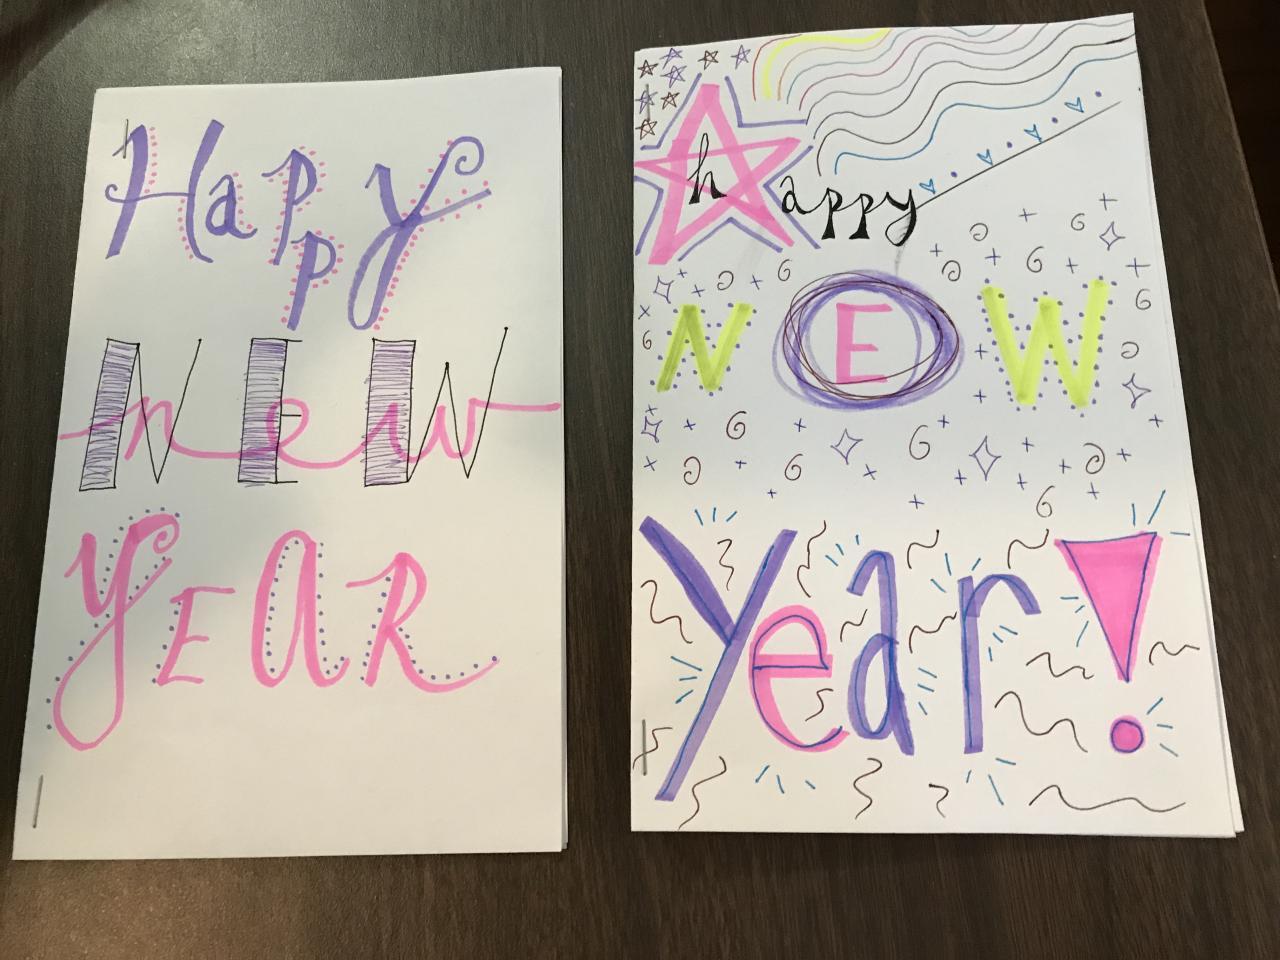 Happy
NEW
new
YEAR
happy
NEW
year!